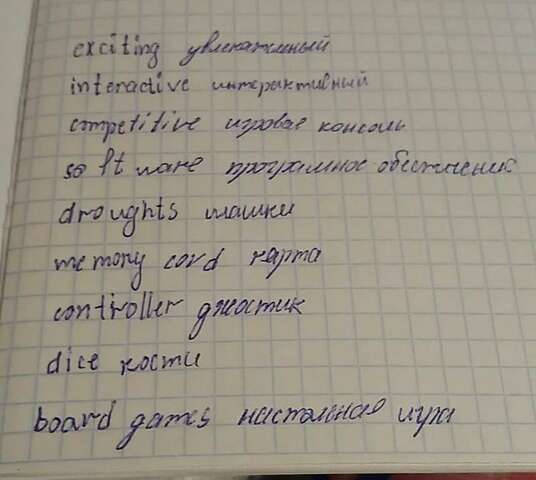 exciting увлекательный
interactive интерактивный
competitive игровая консоль
software программное обеспечение
droughts шашки
memory cord карта
controller джостик
dice кости
board games настольная игра